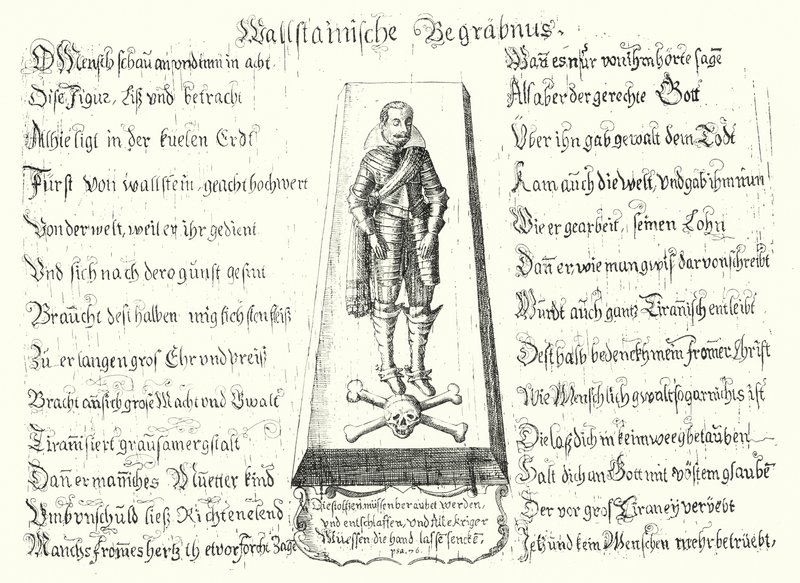 Wallstainische Begräbnus.
O Mensch schau an vnd nim in acht
Dise Figur, liß vnd betracht
Alhie ligt in der kuelen Erdt
Fürst von wallstein, geacht hochwert
Von der welt, weil er ihr gedient
Vnd sich nach dero gunst gesint
Braucht desthalben müglichsten fleiß
Zu erlangen gros Ehr vnd preiß
Bracht an sich große Macht vnd Gwalt
Tirannisiert grausamer gstalt
Dann er manniches Muetter kind
Vmb vnschuld ließ Richten elend
Manchs fromes hertz th et vor forcht Zagē
Wañ es nur von ihm hörte sagē
Als aber der gerechte Gott
Über ihn gab gewalt dem Todt
Kam auch die welt, vnd gab ihm nun
Wie er gearbeit, seinen Lohn
Dañ er, wie man gwiß darvon schreibt
Wurdt auch gantz Tirañisch entleibt
Desthalb bedenck, mein fromer Christ
Wie Menschlich gwalt so gar nichts ist
Die laß dich in keim weeg betauben
Halt dich an Gott mit vöstem glaubē
Der vor gros Tiraney verüebt
Jetzund kein Menschen mehr betrüebt,
Die stoltzen müssen beraubet werden,
vnd entschlaffen, vnd Alle kriger
Muessen die hand lassē senckē,
psa. 76.